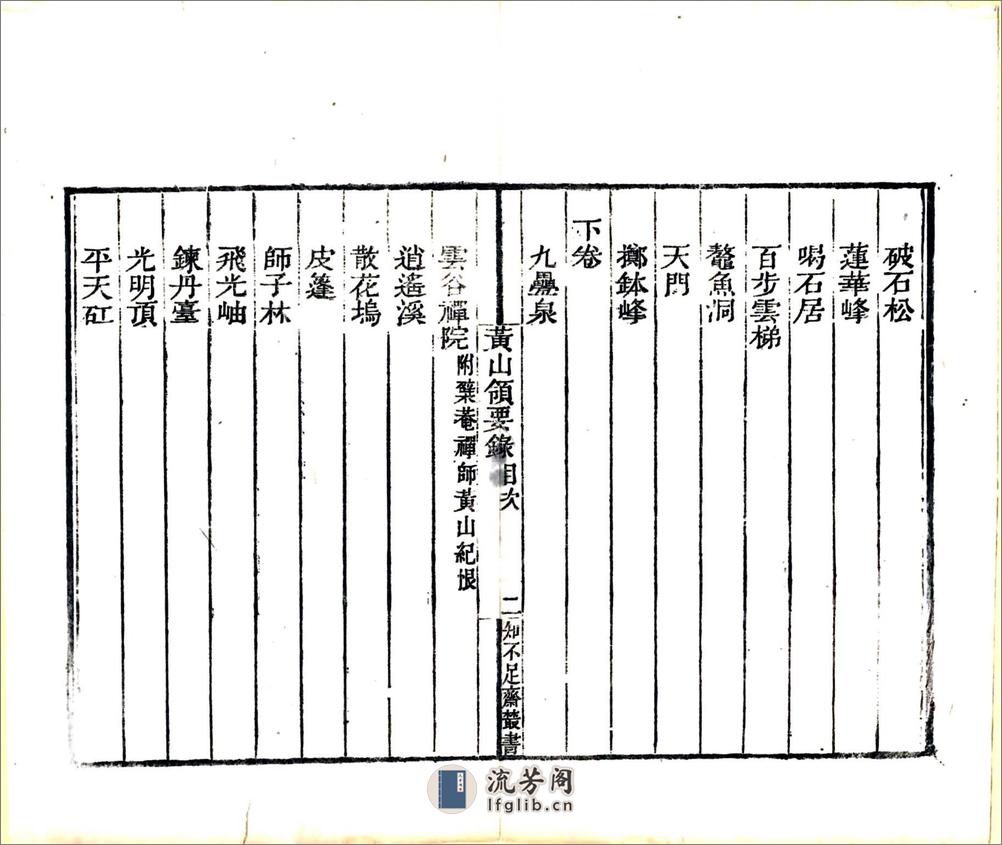 破石松
蓮華峰
喝石居
百步雲梯
鼇魚洞
天門
擲鉢峰
下卷
九疊泉
黃山領要錄 目次 二 知不足齋叢書
雲谷禪院 附櫱菴禪師黃山紀恨
逍遙溪
散花塢
皮篷
師子林
飛光岫
鍊丹臺
光明頂
平天矼
流芳阁
lfglib.cn